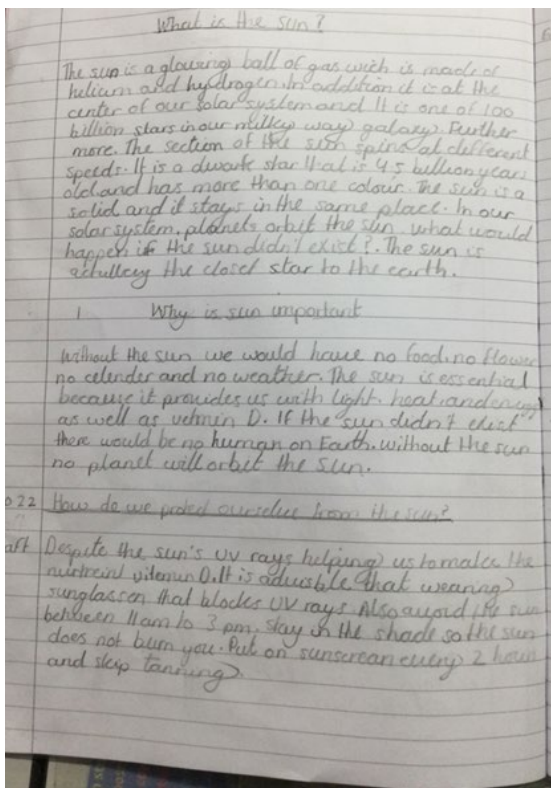 What is the sun?
The sun is a glowing ball of gas wich is made of
helium and hydrogen. In addition it is at the
center of our solar system and It is one of 100
billion stars in our milky way galaxy. Further
more. The section of the sun spins at different
speeds. It is a dwark star that is 4 5 billion years
old and has more than one colour. The sun is a
solid and it stays in the same place. In our
solar system, planets orbit the sun. what would
happen if the sun didn't exist?. The sun is
the closet star to the earth.
1 Why is sun important
Without the sun we would have no food. no flower
no celender and no weather. The sun is essential
because it provides us with light. heat. and
as well as D. If the sun didn't exist
there would be no human on Earth. without the sun
no planet will orbit the sun.
22 How do we proted ourselve from the sun?
aft Despite the sun's UV rays helping us to make the
D. It is that wearing
sunglassen that blocks UV rays Also avoid the sun
between 11am to 3 pm. stay in the shade so the sun
does not burn you. Put on sunscrean every 2 hours
and skip tanning.